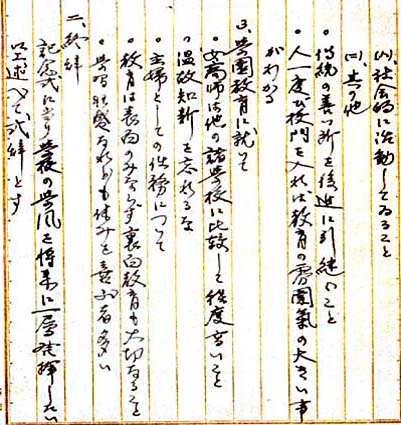 (ハ)社会的に活動してゐること
(ニ)其の他
・傳統の善い所を後進に引継ぐこと
・人一度び校門を入れば教育の雰圍氣の大きい事
がわかる
3、学園教育に就いて
・女高師は他の諸学校に比較して程度高いこと
・温故知新を忘れるな
・主婦としての任務について
・教育は表面のみならず裏面教育も大切なること
・学問旺盛なれども休みを喜ぶ者多い
二、終辞
記念式に当り学校の学風を将来に一層発揮したい
以上述べて式辞とす